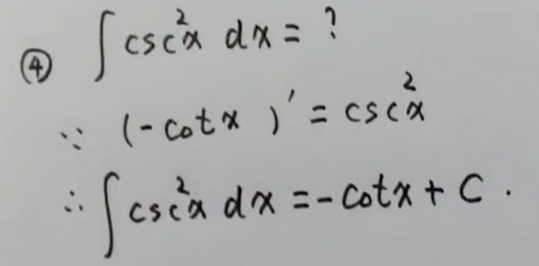 ④ ∫ csc²x dx = ?
∵ (-cotx)′ = csc²x
∴ ∫ csc²x dx = -cotx + C.